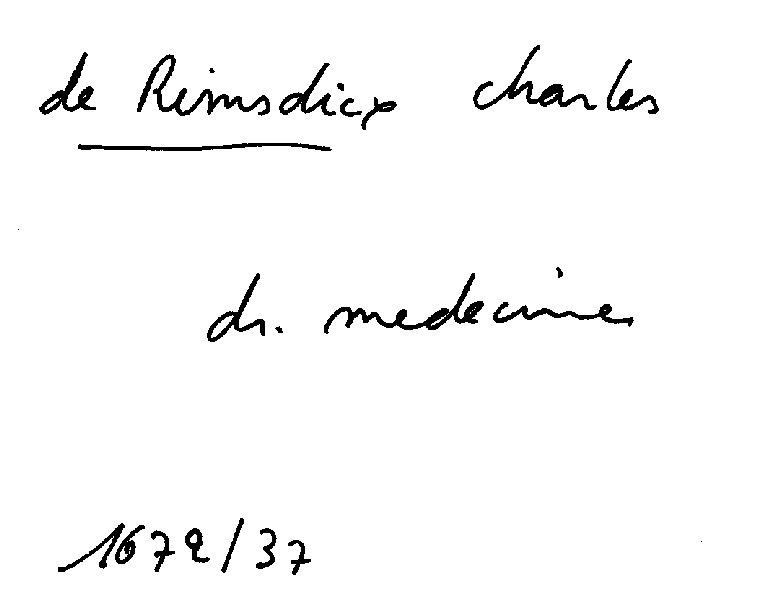 de Rimsdicx charles
dr. medecine
1672/37